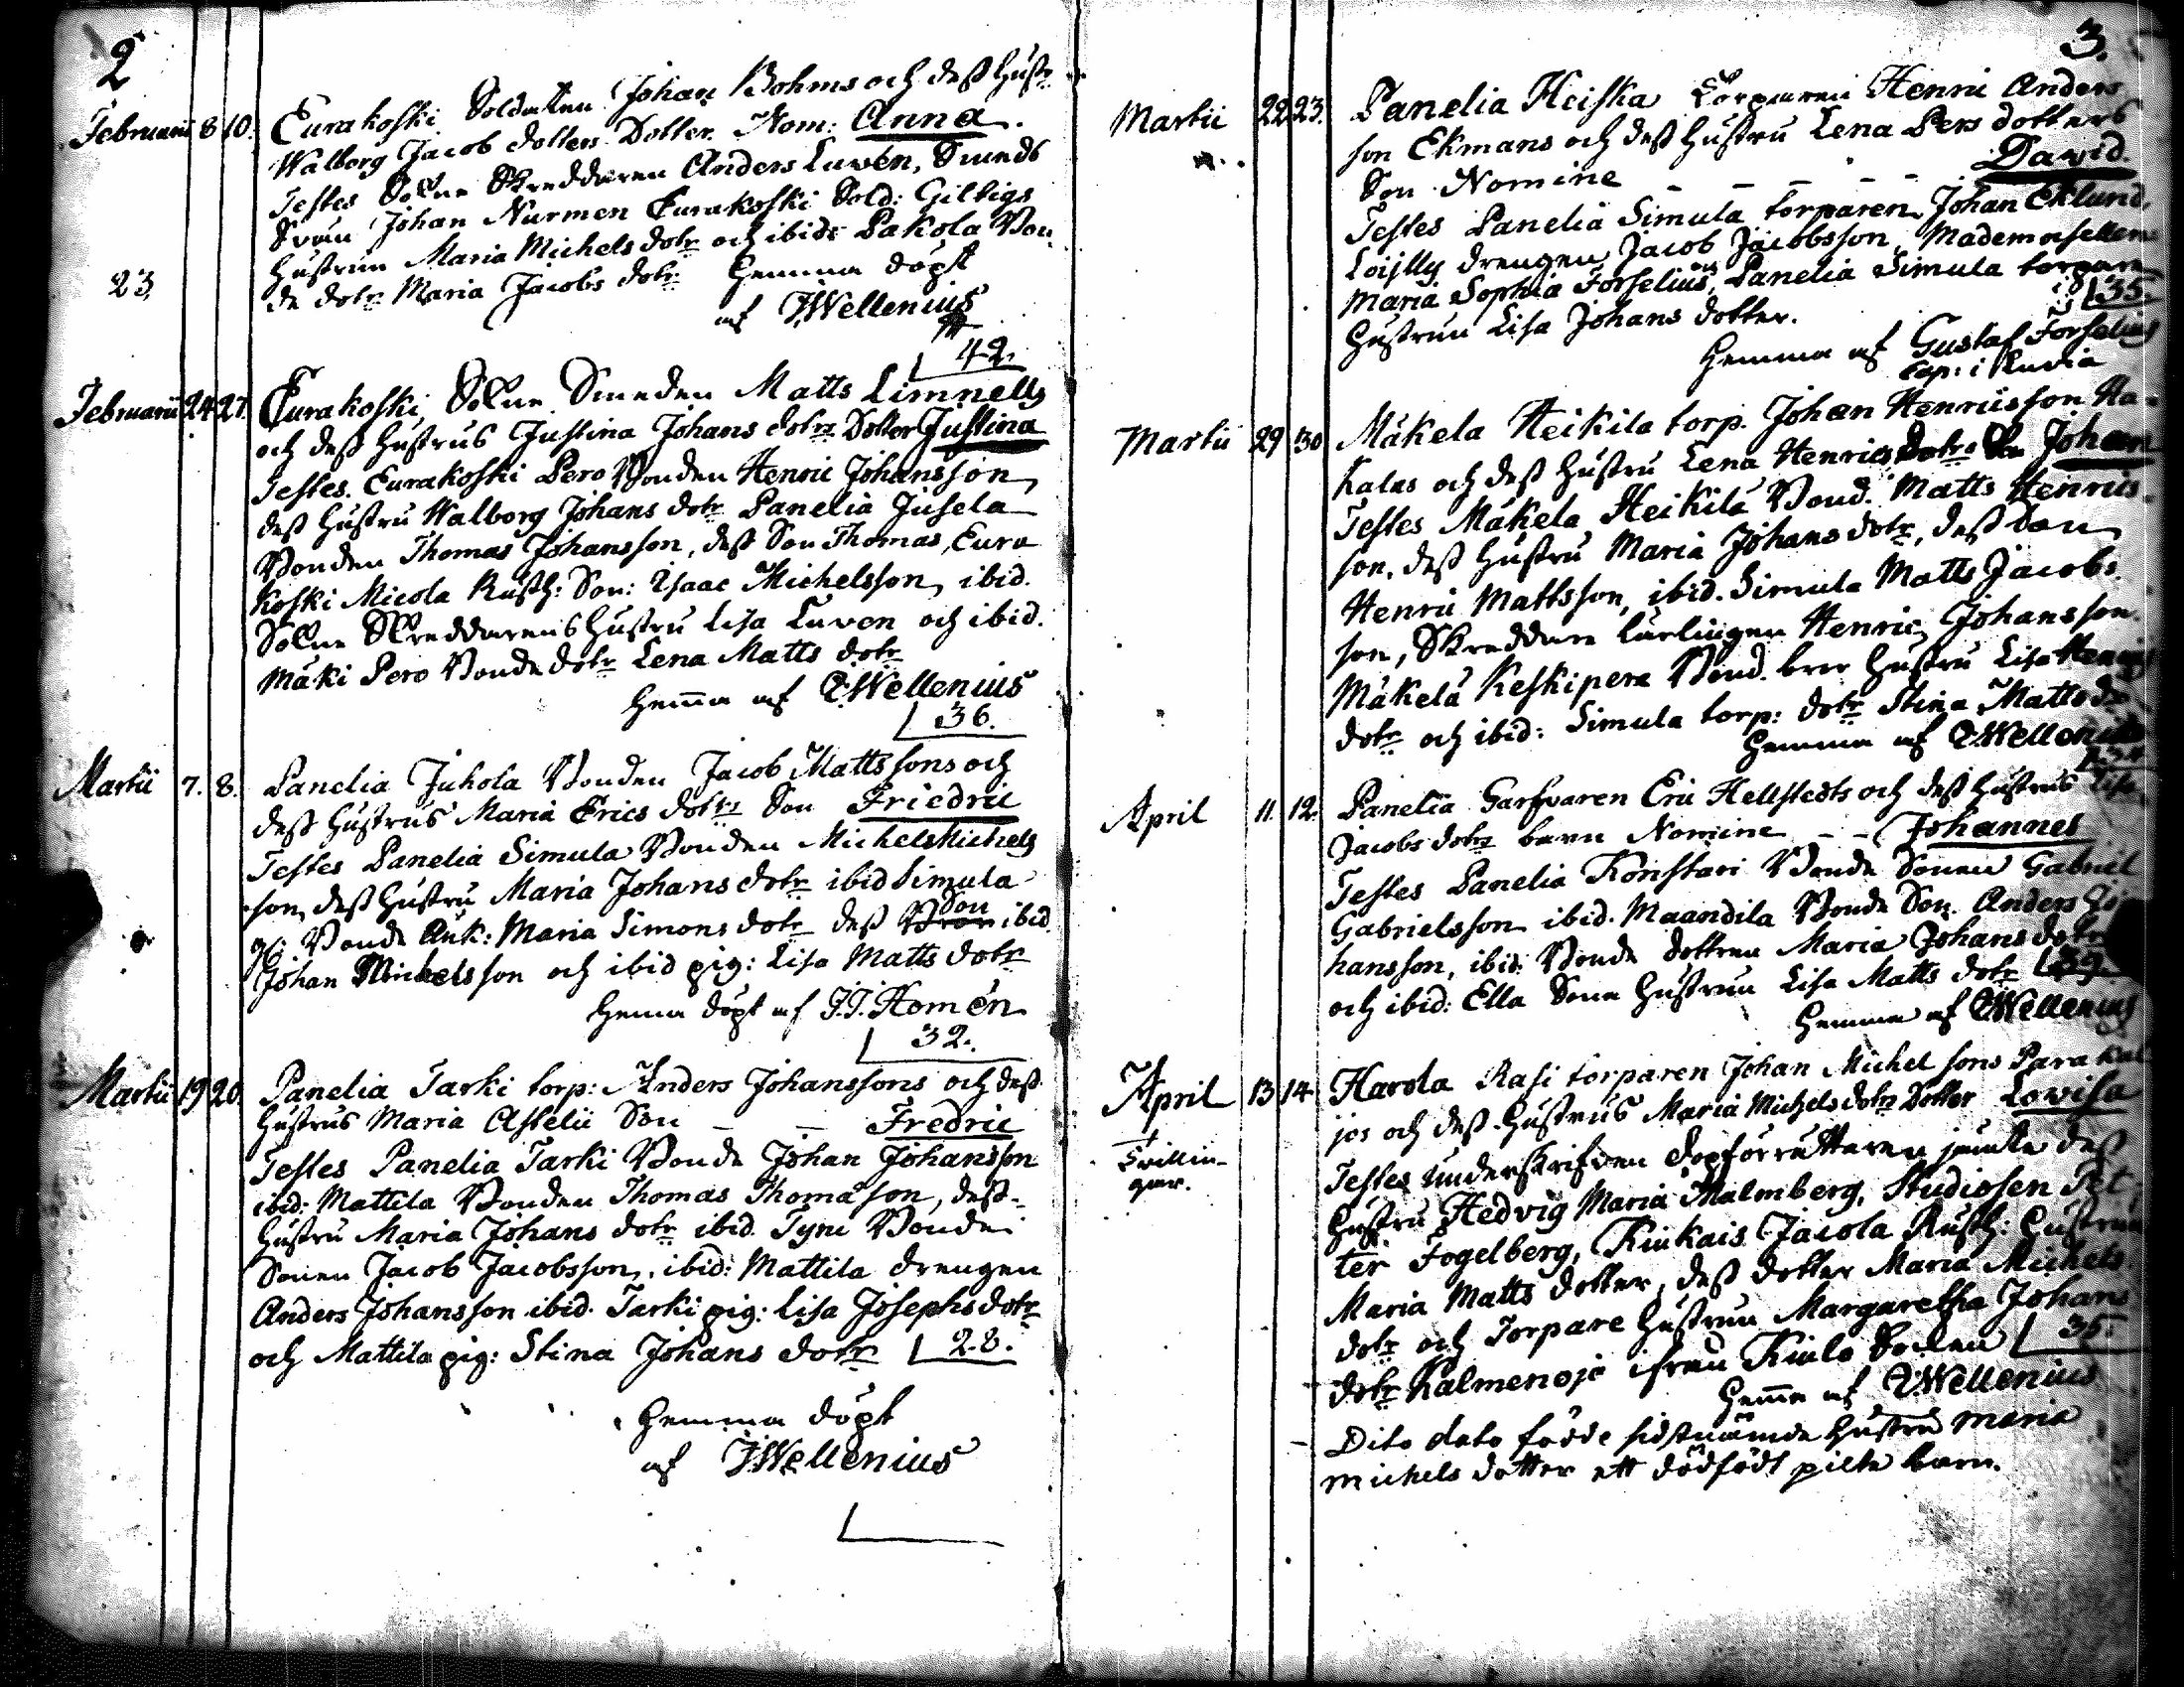 2
Februarii 8 10. Eurakoski Soldaten Johan Bohms och dess hustr
Walborg Jacobs dotters Dotter Nom: Anna.
Testes Sokne Skreddaren Anders Luvén, Smeds
Svån Johan Nurmen Eurakoski Sold: Gilbigs
hustrun Maria Michels dotr och ibid: Pakola Bon
de dotr Maria Jacobs dotr hemma döpt
23.
af JWellenius
42.
Februarii 24 27. Eurakoski Sokne Smeden Matts Limnells
och dess hustrus Justina Johans dotrs Dotter Justina
Testes. Eurakoski Pero Bonden Henric Johansson,
dess hustru Walborg Johans dotr Panelia Jusela
Bonden Thomas Johansson, dess Son Thomas, Eura
koski Micola Rusth: Son: Isaac Michelsson, ibid.
Sokne Skreddarens hustru Lisa Luven och ibid.
Mäki Pero Bonde dotr Lena Matts dotr
hema af JWellenius
36.
Martii 7. 8. Panelia Juhola Bonden Jacob Mattssons och
dess hustrus Maria Erics dotrs Son Friedric
Testes Panelia Simula Bonden Michel Michels
son, dess hustru Maria Johans dotr ibid Simula
Bonde Änk: Maria Simons dotr dess Son ibid
Johan Michelsson och ibid pig: Lisa Matts dotr
hema döpt af J.J. Homén
32.
Martii 19 20. Panelia Tarki torp: Anders Johanssons och dess
hustrus Maria Astelii Son _ _ Fredric
Testes Panelia Tarki Bonde Johan Johansson
ibid: Mattila Bonden Thomas Thomasson, dess
hustru Maria Johans dotr ibid. Tyni Bonde
Sonen Jacob Jacobsson, ibid: Mattila drengen
Anders Johansson ibid. Tarki pig: Lisa Josephs dotr
och Mattila pig: Stina Johans dotr 28.
hemma döpt
af JWellenius
3.
Martii 22 23. Panelia Heiska Torparen Henric Anders
son Ekmans och dess hustru Lena Pers dotters
Son Nomine _ _ _ _ _ David.
Testes Panelia Simula torparen Johan Eklund,
drengen Jacob Jacobsson, Mademoisellen
Maria Sophia Forselius, och Panelia Simula torpare
hustrun Lisa Johans dotter. 35.
hemma af Gustaf Forselius
Cap: i
Martii 29 30 Mäkelä Heikilä torp. Johan Henricsson Ha-
kalas och dess hustru Lena Henrics dotrs Son Johan
Testes Mäkelä Heikilä Bond. Matts Henrics
son, dess hustru Maria Johans dotr, dess Son
Henric Mattsson, ibid. Simula Matts Jacobs
son, Skreddare Lärlingen Henric Johansson
Mäkelä Keskipere Bond. bror hustru Lisa Henrics
dotr och ibid: Simula torp: dotr Stina Matts do
hemma af JWellenius
April 11. 12. Panelia Garfvaren Eric Hellstedts och dess hustrus Lisa
Jacobs dotrs barn Nomine _ _ Johannes
Testes Panelia Konstari Bonde Sonen Gabriel
Gabrielsson ibid. Maandila Bonde Son. Anders Jo
hansson, ibid: Bonde dottren Maria Johans dotr
och ibid: Ella Sone hustrun Lisa Matts dotr 39.
hemma af JWellenius
April 13 14. Harola Rasi torparen Johan Michelsons Parakal
jos och dess hustrus Maria Michels dotrs Dotter Lovisa
Tvillin-
gar.
Testes underskrifven dopförrättaren jemte dess
hustru Hedvig Maria Malmberg, Studiosen Pet
ter Fogelberg, Kiukais Jacola Rusth: hustrun
Maria Matts dotter, dess dotter Maria Michels
dotr och Torpare hustrun Margaretha Johans
dotr Kalmenojo ifrån Kiulo Socken 35.
hema af JWellenius
Dito dato födde sistnämde hustru Maria
Michels dotter ett dödfödt pilte barn.